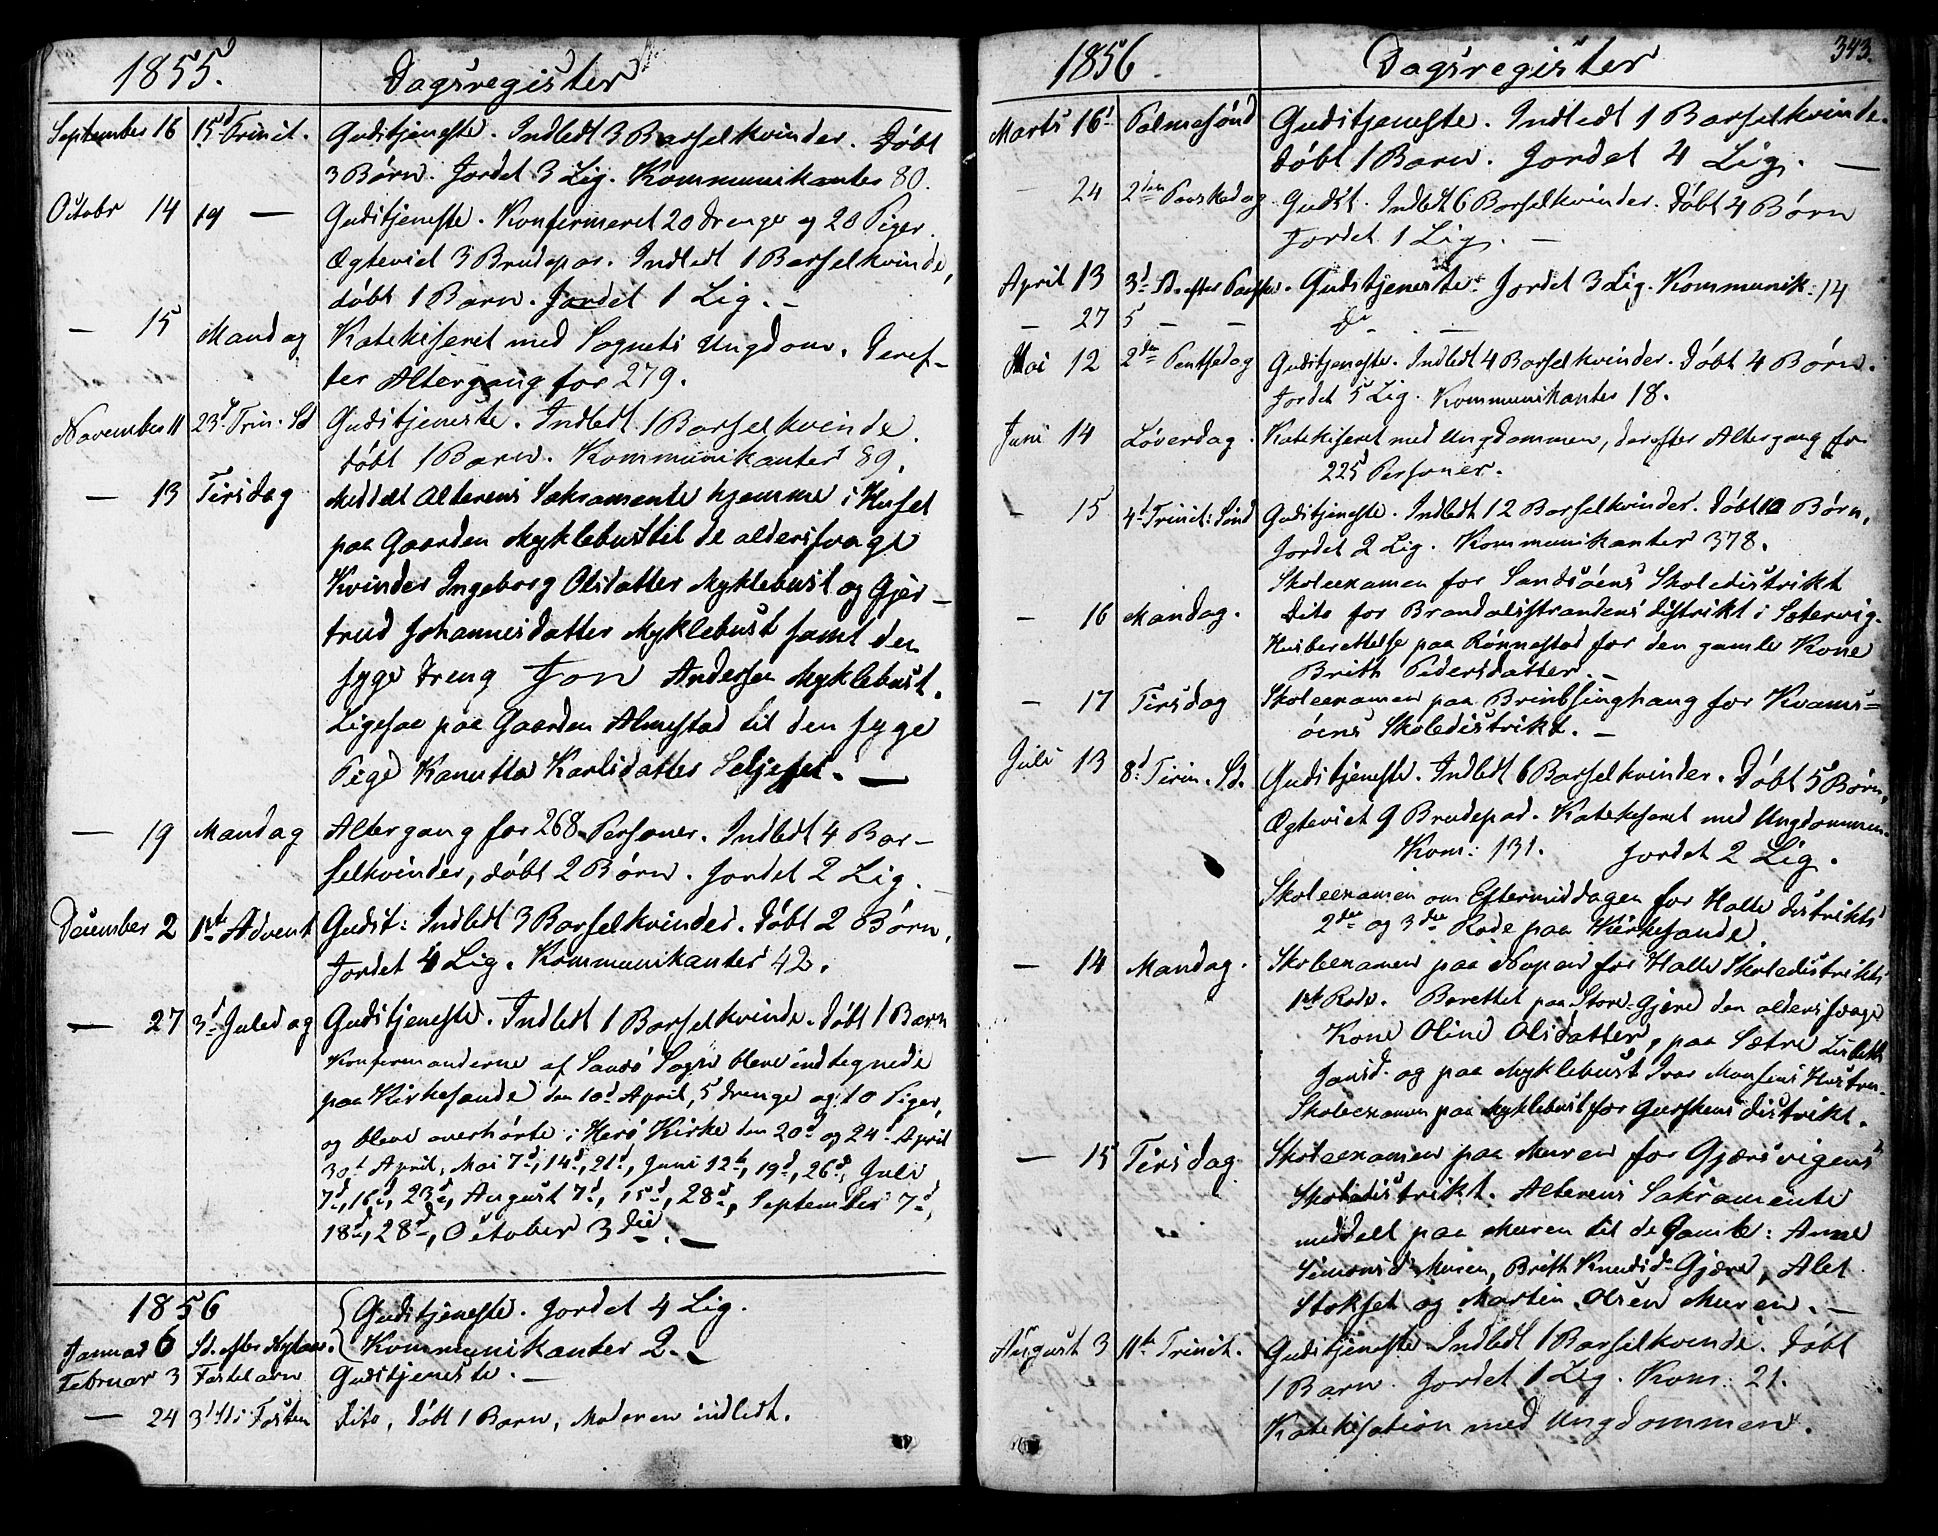 1855. Dagsregister
September 16 15d Trinit. Gudstjeneste. Indledt 3 Barselkvinder. Døbt
3 Børn. Jordet 3 Lig. Kommunikanter 80.
Octobr 14 19 — Gudstjeneste. Konfirmeret 20 Drenge og 20 Piger.
Ægteviet 3 Brudepar. Indledt 1 Barselkvinde,
døbt 1 Barn. Jordet 1 Lig. –
— 15 Mandag Katekiseret med Sognets Ungdom. Deref-
ter Altergang for 279.
November 11 23d Trin. Sd Gudstjeneste. Indledt 1 Barselkvinde.
døbt 1 Barn. Kommunikanter 89.
— 13 Tirsdag Meddelt Alterens Sakramente hjemme i Huset
paa Gaarden Myklebust til de aldersvage
Kvinder Ingeborg Olsdatter Myklebust og Gjer-
trud Johannisdatter Myklebust samt den
syge Dreng Jon Andersen Myklebust.
Ligesaa paa Gaarden Almestad til den syge
Pige Kanutta Karlsdatter Seljeset. —
— 19 Mandag Altergang for 268 Personer. Indledt 4 Bar-
selkvinder, døbt 2 Børn. Jordet 2 Lig.
December 2 1ste Advent Gudst: Indledt 3 Barselkvinder. Døbt 2 Børn,
Jordet 4 Lig. Kommunikanter 42.
— 27 3d Juledag Gudstjeneste. Indledt 1 Barselkvinde. Døbt 1 Barn
Konfirmanderne af Sandø Sogn bleve indtegnede
paa Kirkesande den 10d April, 5 Drenge og 10 Piger,
og bleve overhørte i Herø Kirke den 20d og 24 April
30t April, Mai 7d, 14d, 21d, Juni 12te, 19d, 26d, Juli
7d, 16d, 23d, August 7d, 15d, 28d, September 7d,
18d, 28d, October 3die. —
1856
Januar 6 Sd. efter Nytaar. Gudstjeneste. Jordet 4 Lig.
Kommunikanter 2. –
Februar 3 Fastelavn Gudstjeneste. —
— 24 3d Sd i Fasten Dito, døbt 1 Barn, Moderen indledt.
1856. Dagsregister 343.
Marts 16d Palmesønd Gudstjeneste. Indledt 1 Barselkvinde.
Døbt 1 Barn. Jordet 4 Lig. —
— 24 2den Paaskedag Gudst. Indledt 6 Barselkvinder. Døbt 4 Børn
Jordet 1 Lig. —
April 13 3d Sd. efter Paaske. Gudstjeneste. Jordet 3 Lig. Kommunik: 14
— 27 5 — — do — —
Mai 12 2den Pintsedag Gudstjeneste. Indledt 4 Barselkvinder. Døbt 4 Børn.
Jordet 5 Lig. Kommunikanter 18.
Juni 14 Løverdag. Katekiseret med Ungdommen, derefter Altergang for
225 Personer.
— 15 4d Trinit: Sønd Gudstjeneste. Indledt 12 Barselkvinder. Døbt 10 Børn,
Jordet 2 Lig. Kommunikanter 378.
Skoleexamen for Sandsøens Skoledistrikt
— 16 Mandag. Dito for Brandalsstrandens distrikt i Sætervig.
Husberettelse paa Rønnestad for den gamle Kone
Brith Pedersdatter. –
— 17 Tirsdag Skoleexamen paa Bringsinghaug for Kvams-
øens Skoledistrikt. –
Juli 13 8d Trin. Sd. Gudstjeneste. Indledt 6 Barselkvinder. Døbt 5 Børn,
Ægteviet 9 Brudepar. Katekiseret med Ungdommen.
Kom: 131. Jordet 2 Lig.
Skoleexamen om Eftermiddagen for Halle distrikts
2den og 3die Rode paa Kirkesande.
— 14 Mandag. Skoleexamen paa Nopen for Halle Skoledistrikts
1ste Rode. Berettet paa Store-Gjerde den aldersvage
Kone Oline Olsdatter, paa Sætre Lisbeth
Jonsd. og paa Myklebust Ivar Monsens Hustru.
Skoleexamen paa Myklebust for Gurskens distrikt.
— 15 Tirsdag Skoleexamen paa Muren for Gjærsvigens
Skoledistrikt. Alterens Sakramente
meddelt paa Muren til de Gamle: Anne
Simonsd Muren, Brith Knudsd Gjære, Alet
Stokset og Martin Olsen Muren. —
August 3 11te Trinit. Gudstjeneste. Indledt 1 Barselkvinde. Døbt
1 Barn. Jordet 1 Lig. Kom: 21.
Katekisation med Ungdommen.